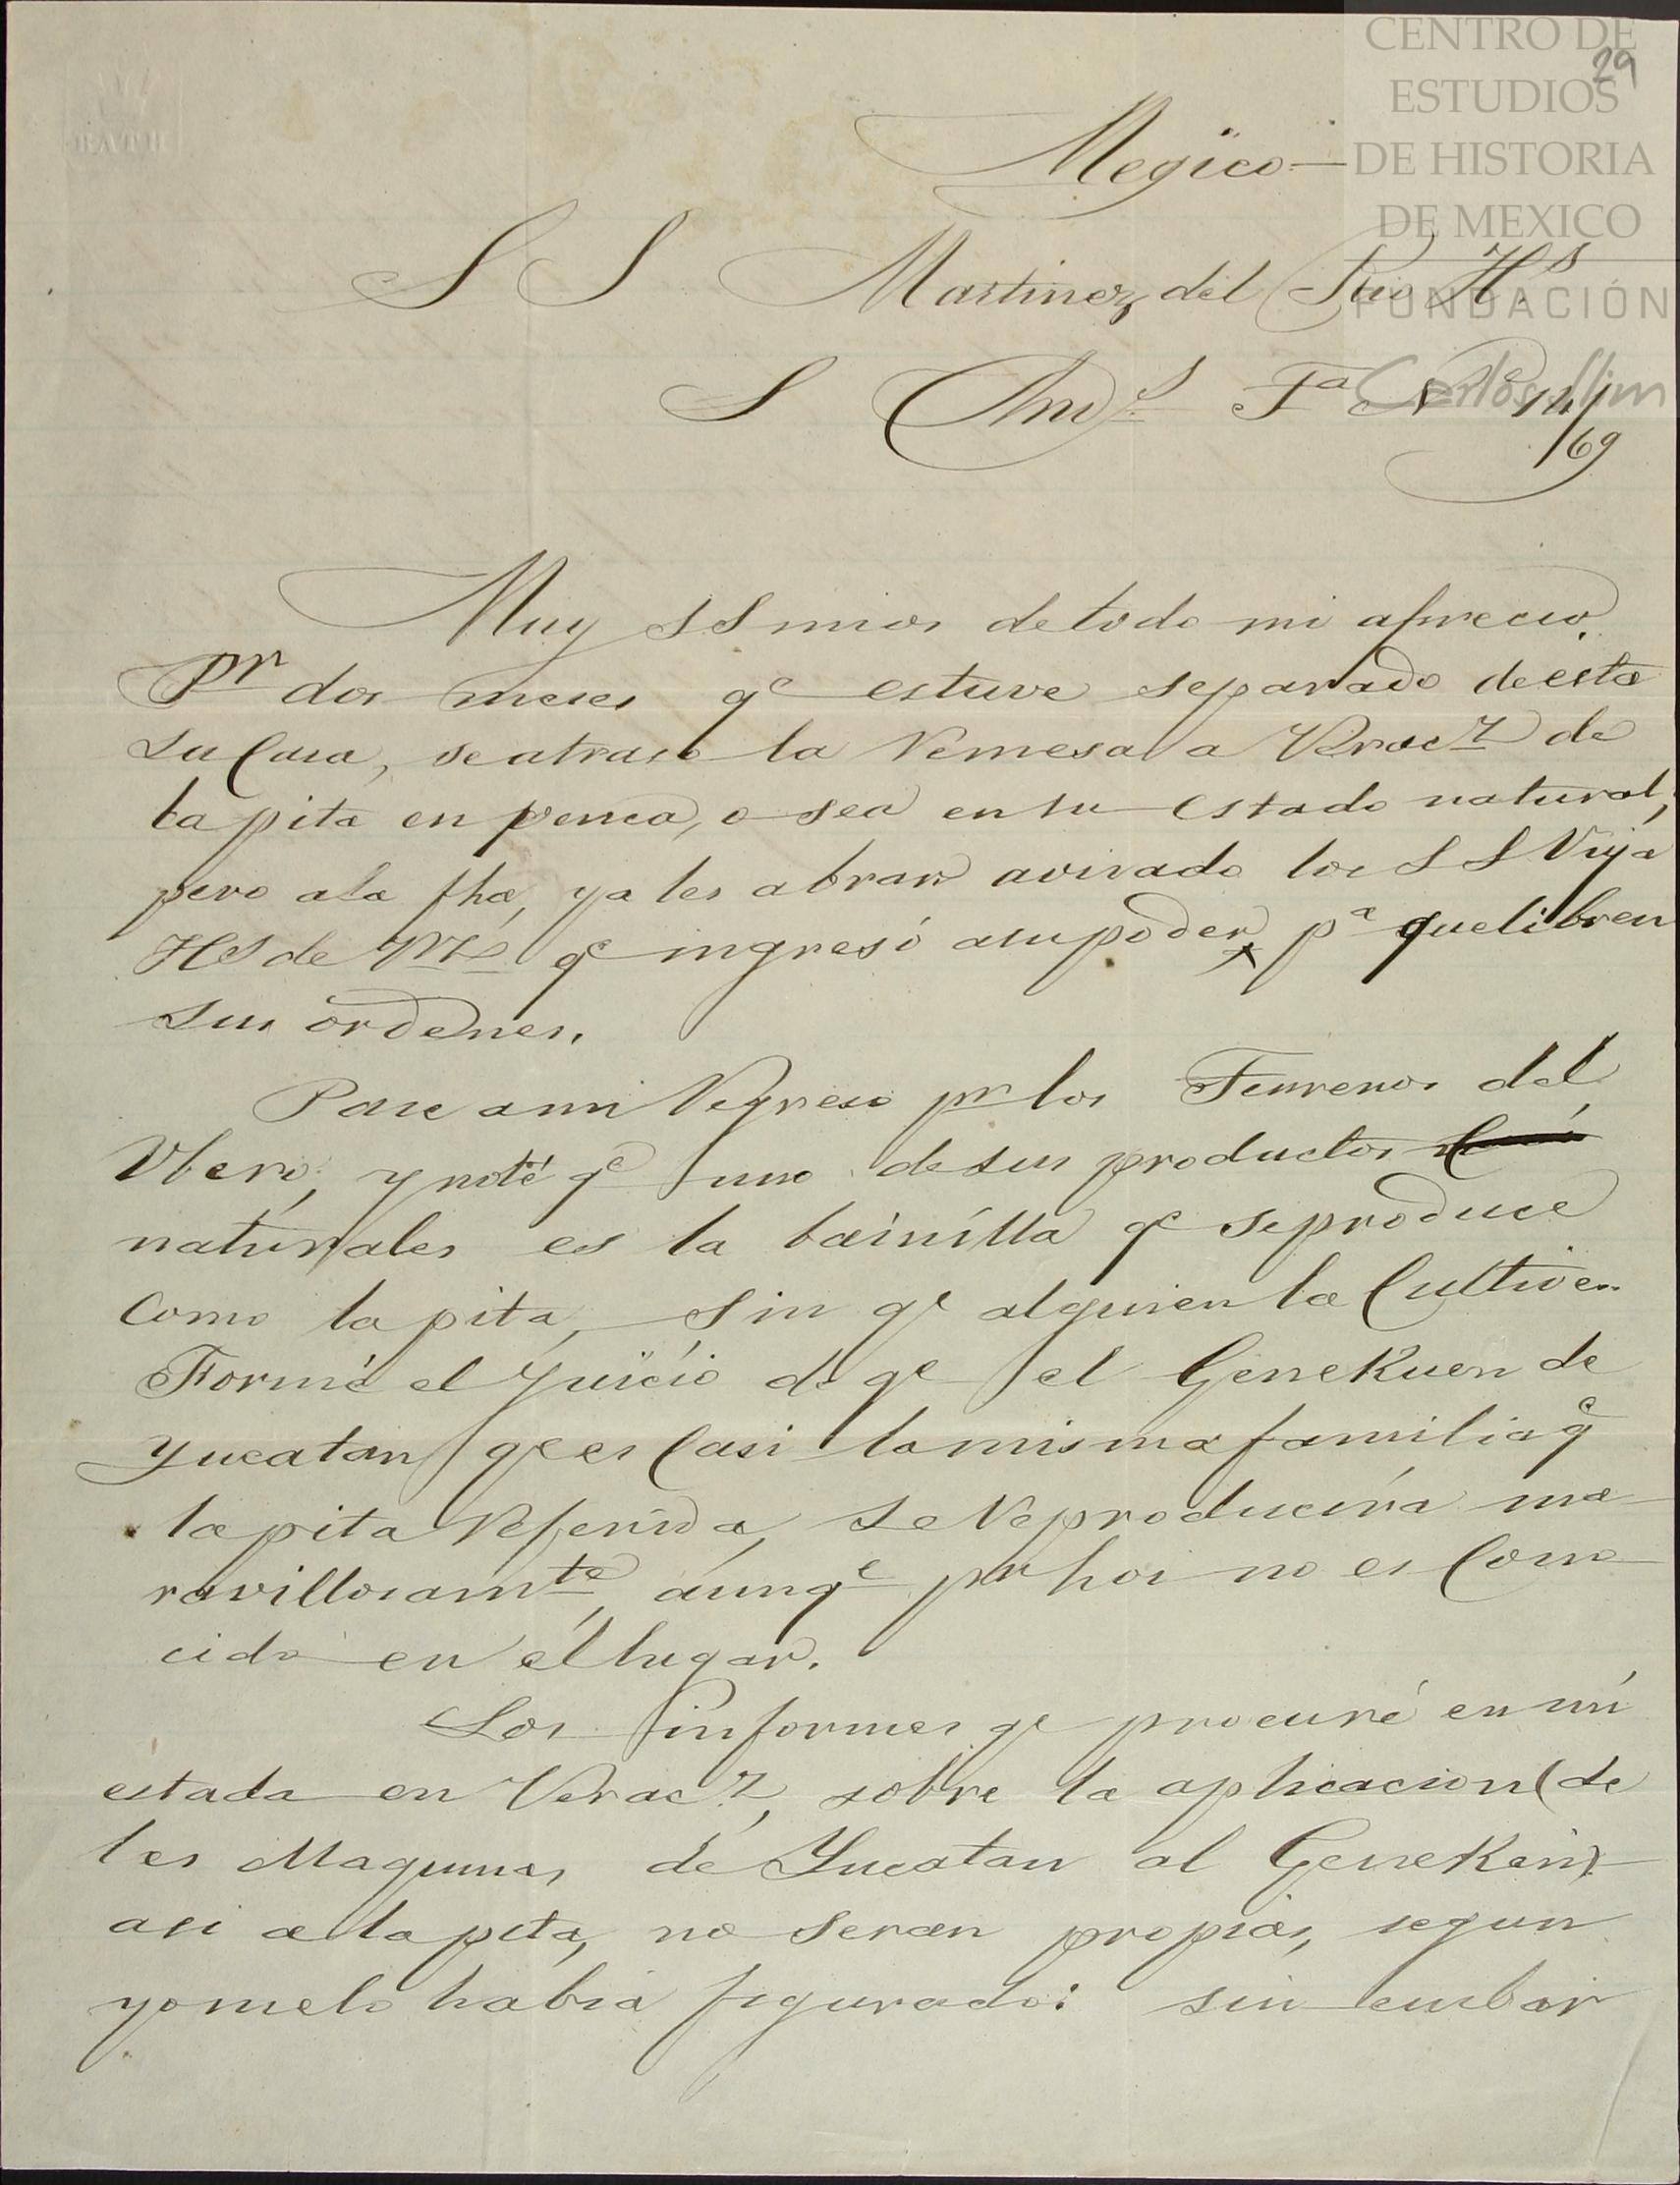 CENTRO DE
29
ESTUDIOS
DE HISTORIA
DE MEXICO
FUNDACIÓN
Carlos Slim
BATH
Megico
S S Martinez del Rio Hs
S Ands Ta 14/69
Muy S S mios de todo mi aprecio
Pr dos meses qe estuve separado de esta
su Casa, se atraso la Remesa a Veracz de
la pita en penca, o sea en su estado natural,
pero a la fha, ya les abran avisado los S S Vija
Hs de qe ingresó a su poder x pa que libren
sus ordenes.
Pase a mi Regreso pr los Terrenos del
Ubero, y noté qe uno de sus productos
naturales es la bainilla qe se produce
Como la pita, sin qe alguien la Cultive.
Formé el Juicio de qe el GeneKuen de
Yucatan qe es Casi la misma familia qe
la pita Referida, se Reproducirá ma
ravillosamte, aunqe pr hoi no es Cono
cido en el lugar.
Los informes qe procuré en mi
estada en Veracz, sobre la aplicacion de
las Maquinas de Yucatan al GeneKen
asi a la pita, no seran propias, segun
yo me lo habia figurado: sin embar